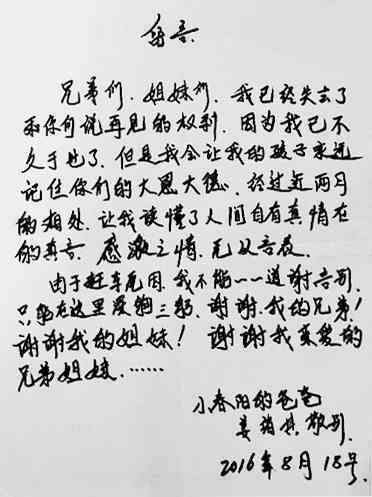 留言
兄弟们、姐妹们，我已经失去了
和你们说再见的权利，因为我已不
久于世了，但是我会让我的孩子永远
记住你们的大恩大德、经过近两月
的相处，让我读懂了人间自有真情在
的真言，感激之情，无以言表。
由于赶车原因，我不能一一道谢告别，
只能在这里爱鞠三躬，谢谢我的兄弟！
谢谢我的姐妹！谢谢我亲爱的
兄弟姐妹。……
小春阳的爸爸
姜 敬别
2016年8月18号